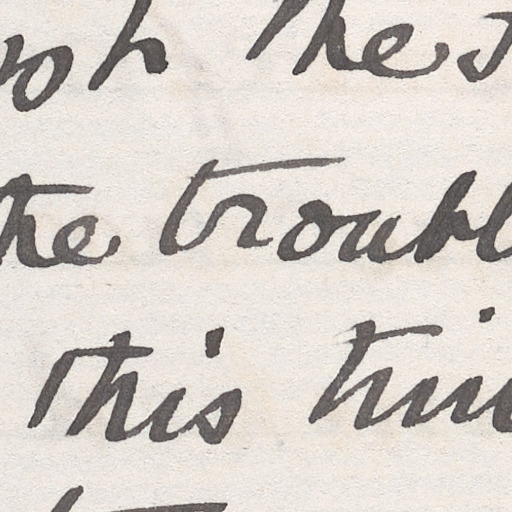 the
the troubl
this tim